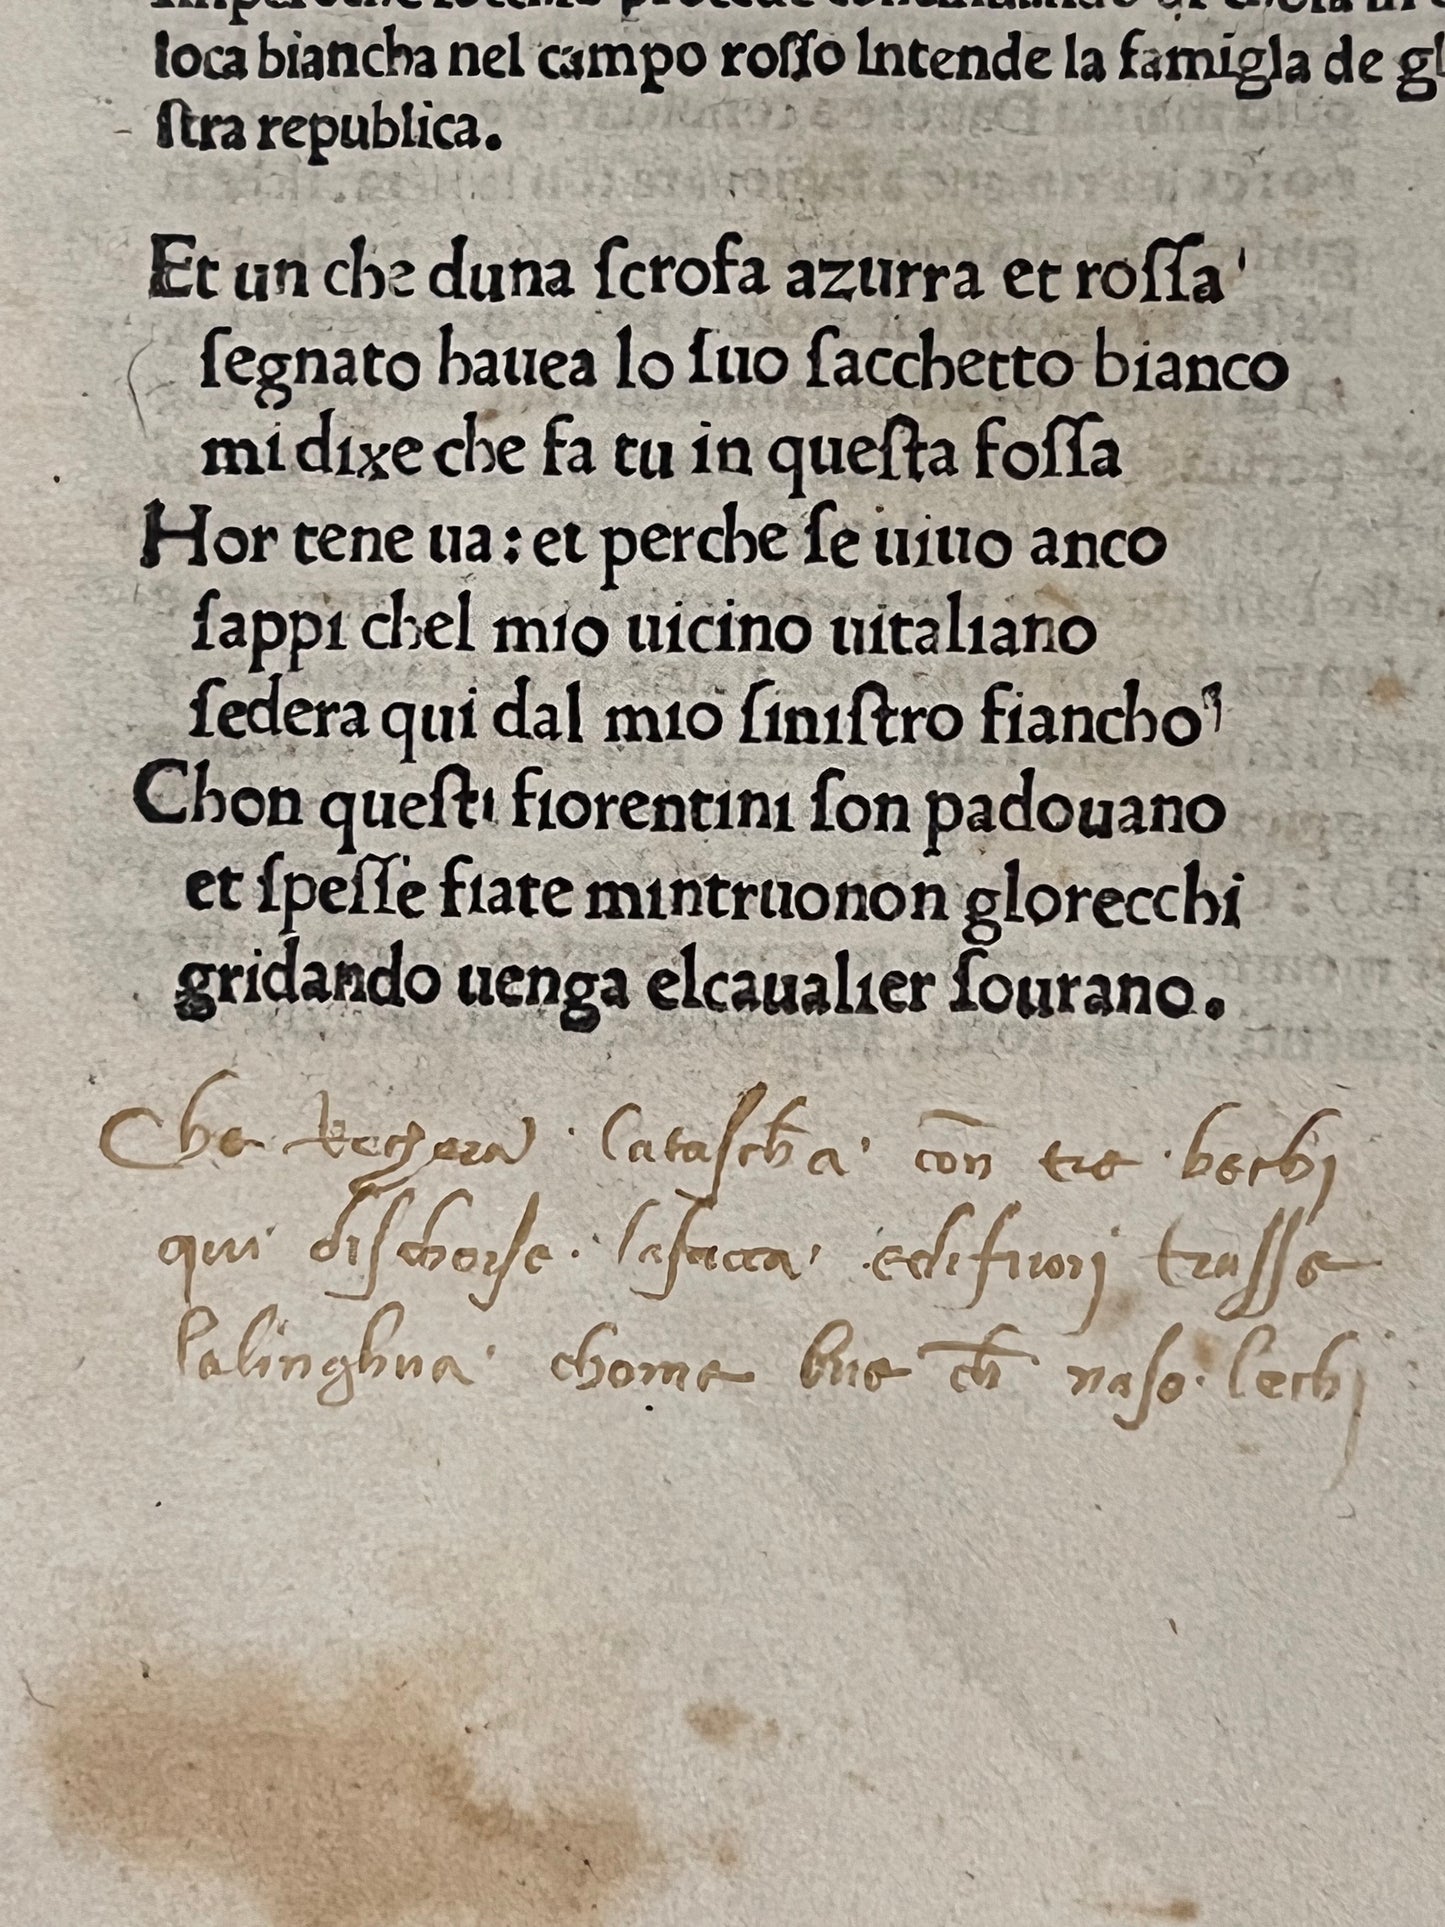 loca biancha nel campo roſſo Intende la famigla de gl
ſtra republica.
Et un che duna ſcrofa azurra et roſſa
ſegnato hauea lo ſuo ſacchetto bianco
mi dixe che fa tu in queſta foſſa
Hor tene ua: et perche ſe uiuo anco
ſappi chel mio uicino uitaliano
ſedera qui dal mio ſiniſtro fiancho
Chon queſti fiorentini ſon padouano
et ſpeſſe fiate mintruonon glorecchi
gridando uenga elcaualier ſourano.
Che rechera lataſcha con tre bechi
qui diſchorſe laſacca edifuorj traſſe
lalinghua chome bue ch̄ naſo lechj